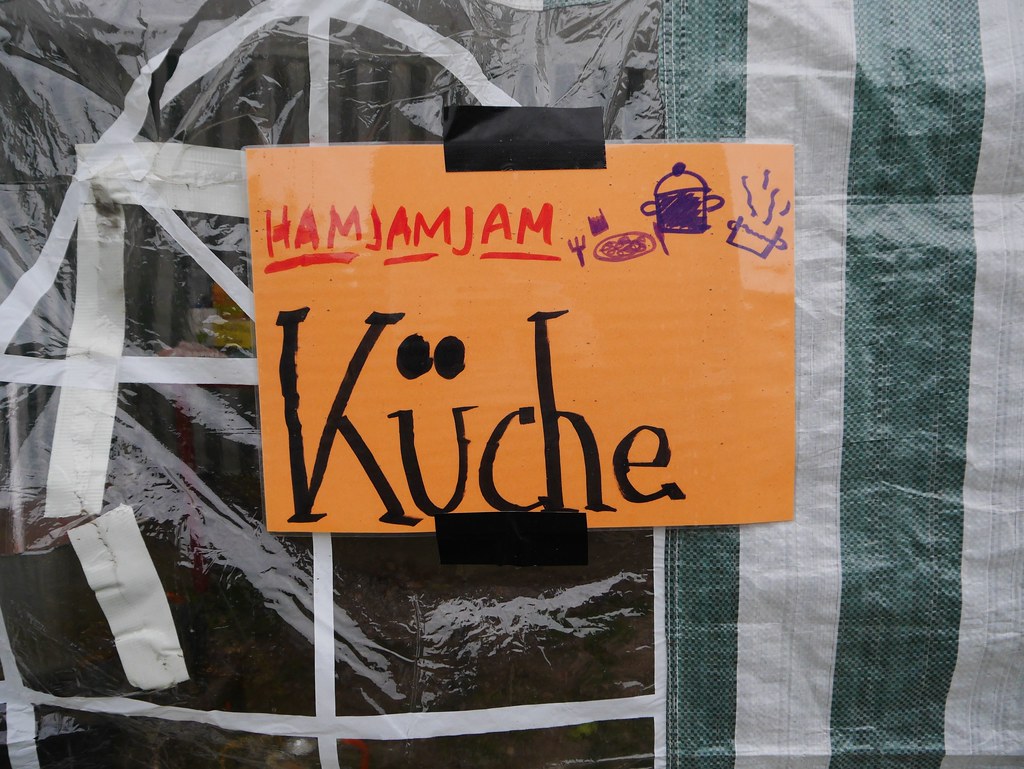 HAMJAMJAM
Küche